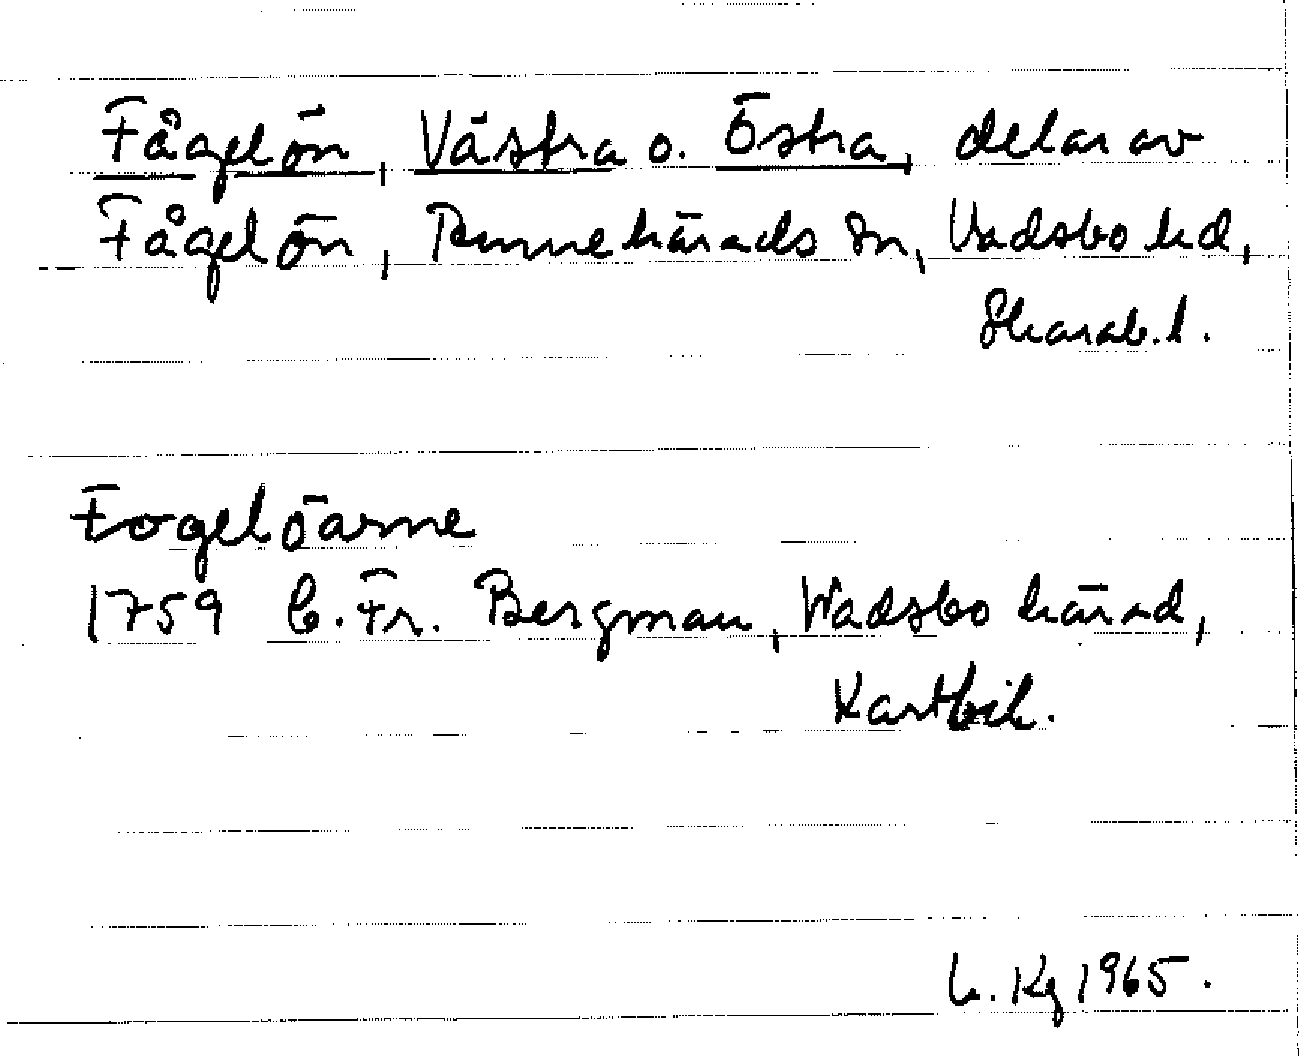 Fågelön, Västra o. Östra, delar av
Fågelön, Binnebärads sn, Vadsbo hd,
Skarab. l.
Fogelöarne
1759 C. Fr. Bergman, Wadsbo härad,
Kartbik.
Kg 1965.